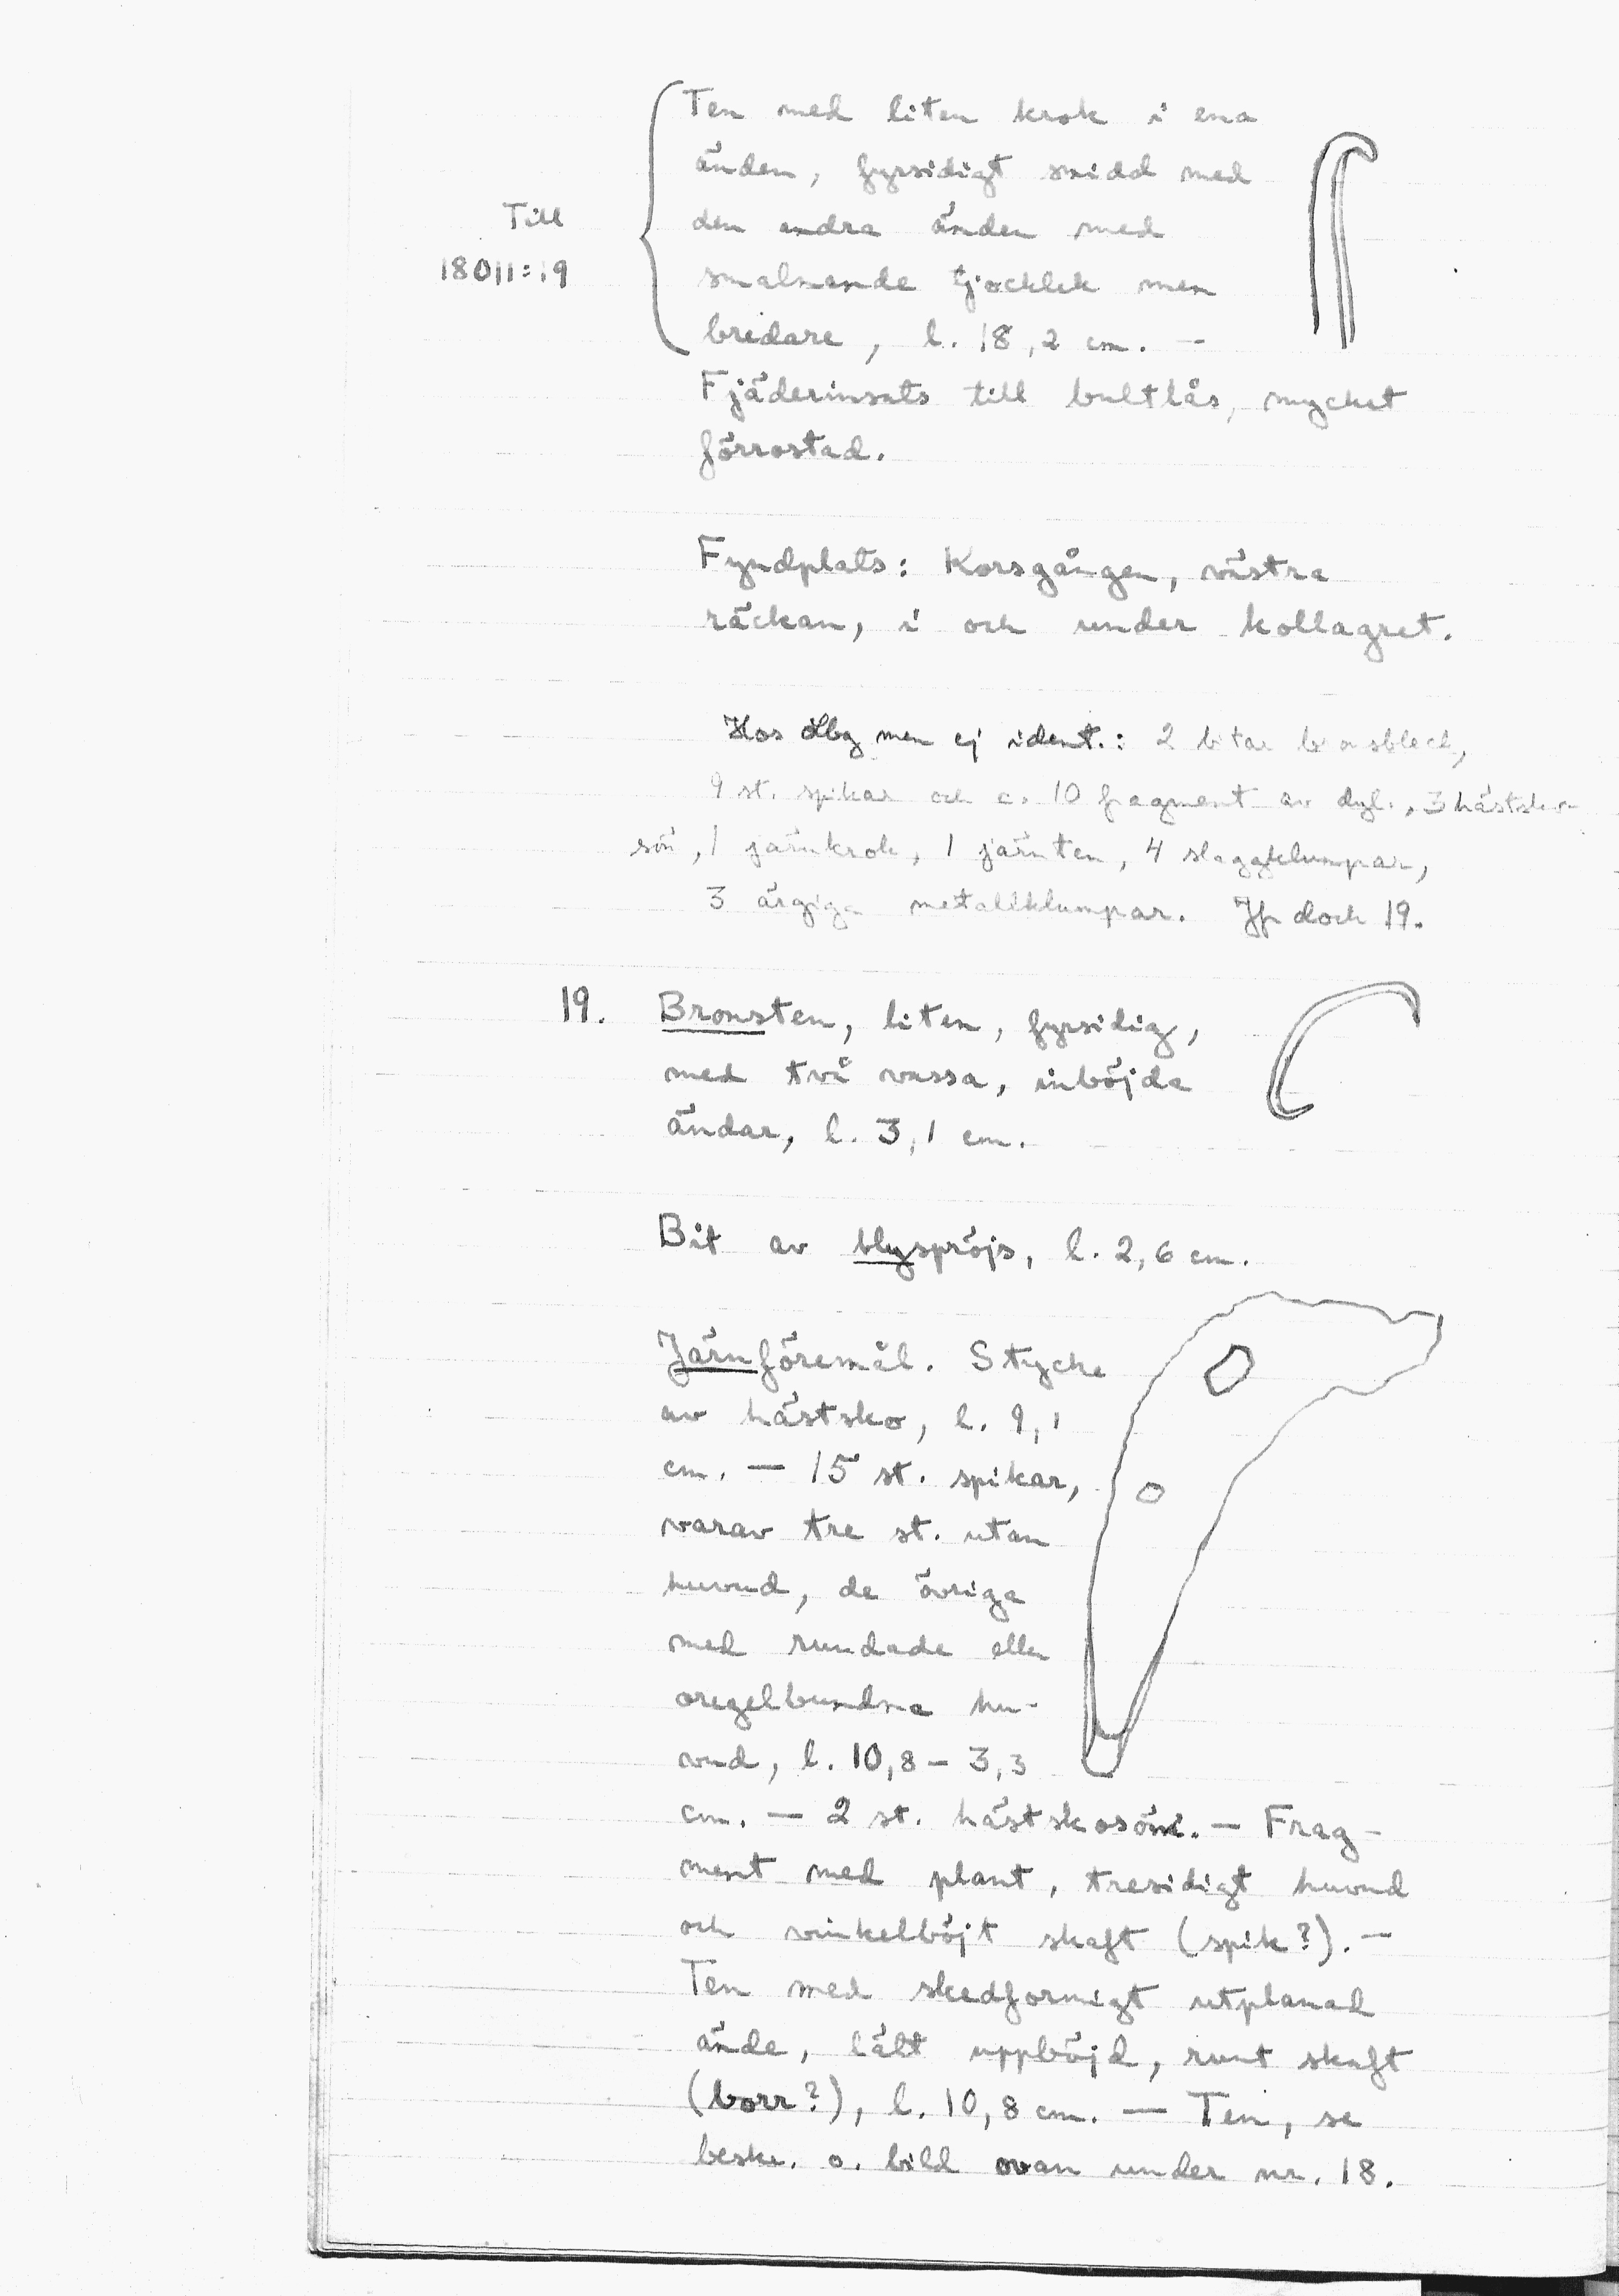 Ten med liten krok i ena
änden, fyrsidigt smidd med
Till
den andra änden med
18011:19
smalnande tjocklek men
bredare, l. 18,2 cm. —
Fjäderinsats till bultlås, mycket
förrostad.
Fyndplats: Korsgången, västra
räckan, i och under kollagret.
Hos Lbg men ej ident.: 2 bitar bronsbleck,
9 st. spikar och c. 10 fragment av dyl., 3 hästsko-
söm, 1 järnkrok, 1 järnten, 4 slaggklumpar,
3 ärgiga metallklumpar. Jfr dock 19.
19. Bronsten, liten, fyrsidig,
med två vassa, inböjda
ändar, l. 3,1 cm.
Bit av blyspröjs, l. 2,6 cm.
Järnföremål. Stycke
av hästsko, l. 9,1
cm. — 15 st. spikar,
varav tre st. utan
huvud, de övriga
med rundade eller
oregelbundna hu-
vud, l. 10,8 – 3,3
cm. — 2 st. hästskosöm. — Frag-
ment med plant, tresidigt huvud
och vinkelböjt skaft (spik?). —
Ten med skedformigt utplanad
ände, lätt uppböjd, runt skaft
(borr?), l. 10,8 cm. — Ten, se
beskr. o. bild ovan under nr. 18.